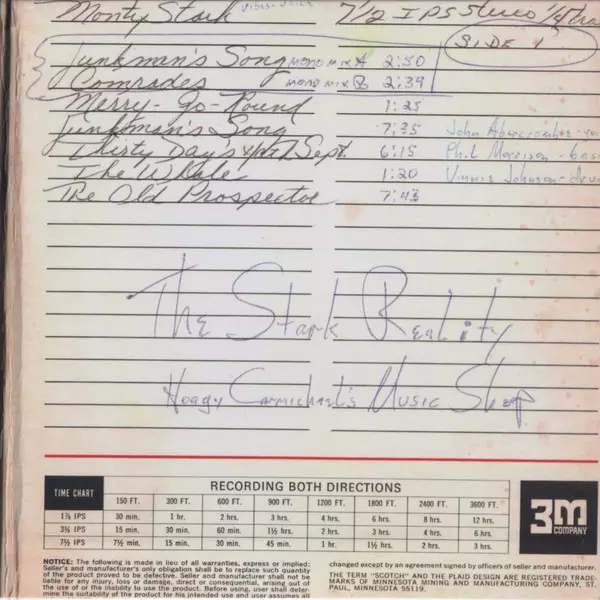 Monty Stark vibes-voice 7 1/2 IPS Stereo 1/4 tra
SIDE 1
Junkman's Song MONO MIX A 2:50
Comrades MONO MIX B 2:39
Merry-Go-Round 1:25
Junkman's Song 7:35 John Abercrombie
Thirty Days Sept. 6:15 Phil Morrison - bass
The Whale 1:20 Vinnie Johnson - dru
The Old Prospector 7:43
The Stark Reality
Hoagy Carmichael's Music Shop
TIME CHART
RECORDING BOTH DIRECTIONS
150 FT. 300 FT. 600 FT. 900 FT. 1200 FT. 1800 FT. 2400 FT. 3600 FT.
1⅞ IPS 30 min. 1 hr. 2 hrs. 3 hrs. 4 hrs. 6 hrs. 8 hrs. 12 hrs.
3¾ IPS 15 min. 30 min. 60 min. 1½ hrs. 2 hrs. 3 hrs. 4 hrs. 6 hrs.
7½ IPS 7½ min. 15 min. 30 min. 45 min. 1 hr. 1½ hrs. 2 hrs. 3 hrs.
3M
COMPANY
NOTICE: The following is made in lieu of all warranties, express or implied:
Seller's and manufacturer's only obligation shall be to replace such quantity
of the product proved to be defective. Seller and manufacturer shall not be
liable for any injury, loss or damage, direct or consequential, arising out of
the use of or the inability to use the product. Before using, user shall deter-
mine the suitability of the product for his intended use and user assumes all
changed except by an agreement signed by officers of seller and manufacturer.
THE TERM "SCOTCH" AND THE PLAID DESIGN ARE REGISTERED TRADE-
MARKS OF MINNESOTA MINING AND MANUFACTURING COMPANY, ST.
PAUL, MINNESOTA 55119.